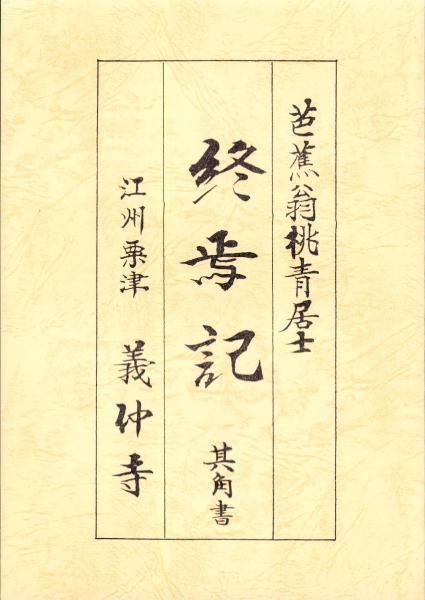 芭蕉翁桃青居士
終焉記 其角書
江州粟津 義仲寺